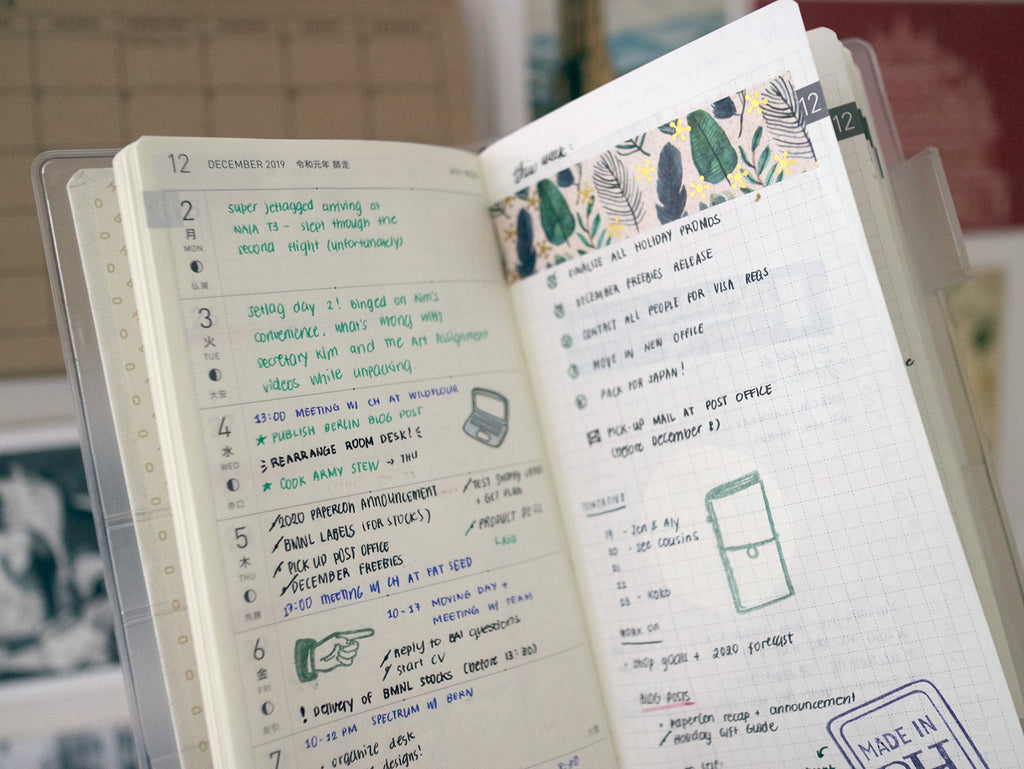 12 DECEMBER 2019 令和元年 師走
2
月
MON
仏滅
super jetlagged arriving at
NAIA T3 - slept through the
second flight (unfortunately)
3
火
TUE
大安
Jetlag day 2! Binged on Kim's
convenience, what's wrong with
secretary Kim and the Art Assignment
videos while unpacking.
4
水
WED
赤口
13:00 MEETING W/ CH AT WILDFLOUR
★ PUBLISH BERLIN BLOG POST
REARRANGE ROOM DESK!
★ COOK ARMY STEW → THU
5
木
THU
先勝
2020 PAPERCON ANNOUNCEMENT
BMNL LABELS (FOR STOCKS)
PICK UP POST OFFICE
DECEMBER FREEBIES
+ GET PLAN
PRODUCT
13:00 MEETING W/ CH AT FAT SEED
6
金
FRI
友引
10-17 MOVING DAY +
MEETING W/ TEAM
Reply to questions
start CV
! Delivery of BMNL STOCKS (before 13:30)
7
10-12 PM SPECTRUM W/ BERN
organize desk
designs!
this week:
12
12
FINALIZE ALL HOLIDAY PROMOS
DECEMBER FREEBIES RELEASE
CONTACT ALL PEOPLE FOR VISA REQS
MOVE IN NEW OFFICE
PACK FOR JAPAN!
PICK-UP MAIL AT POST OFFICE
(before December 8)
TENTATIVE
19 - Zen & Aly
20 - see cousins
21
22
23 - KOKO
WORK ON
- shop goals + 2020 forecast
BLOG POSTS
• Papercon recap + announcement
Holiday Gift Guide
MADE IN
PH